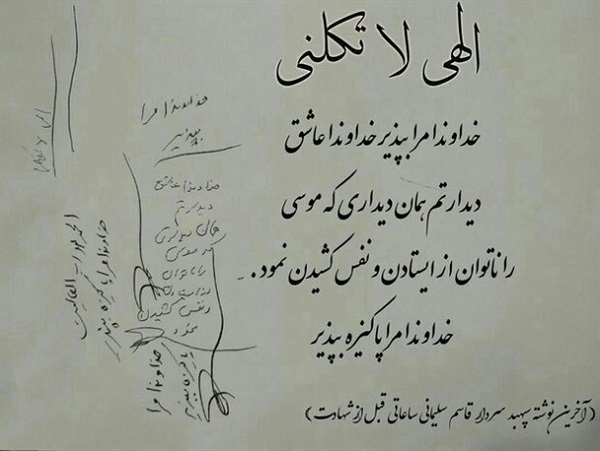 الهی لا تکلنی
خداوندا مرا بپذیر خداوندا عاشق
دیدارتم همان دیداری که موسی
را ناتوان از ایستادن و نفس کشیدن نمود .
خداوندا مرا پاکیزه بپذیر
(آخرین نوشته سپهبد سردار قاسم سلیمانی ساعاتی قبل از شهادت)
خداوندا مرا
بپذیر
خداوندا عاشق
دیدارتم
همان دیداری
که موسی
را ناتوان
از ایستادن
و نفس کشیدن
نمود
خداوندا مرا
پاکیزه بپذیر
الحمد لله رب العالمین
خداوندا مرا پاکیزه بپذیر
الهی لا تکلنی